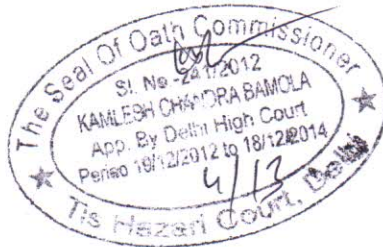 The Seal Of Oath Commissioner
KAMLESH CHANDRA BAMOLA
App. By Delhi High Court
Period 19/12/2012 to 18/12/2014
4/13
Tis Hazari Court, Delhi